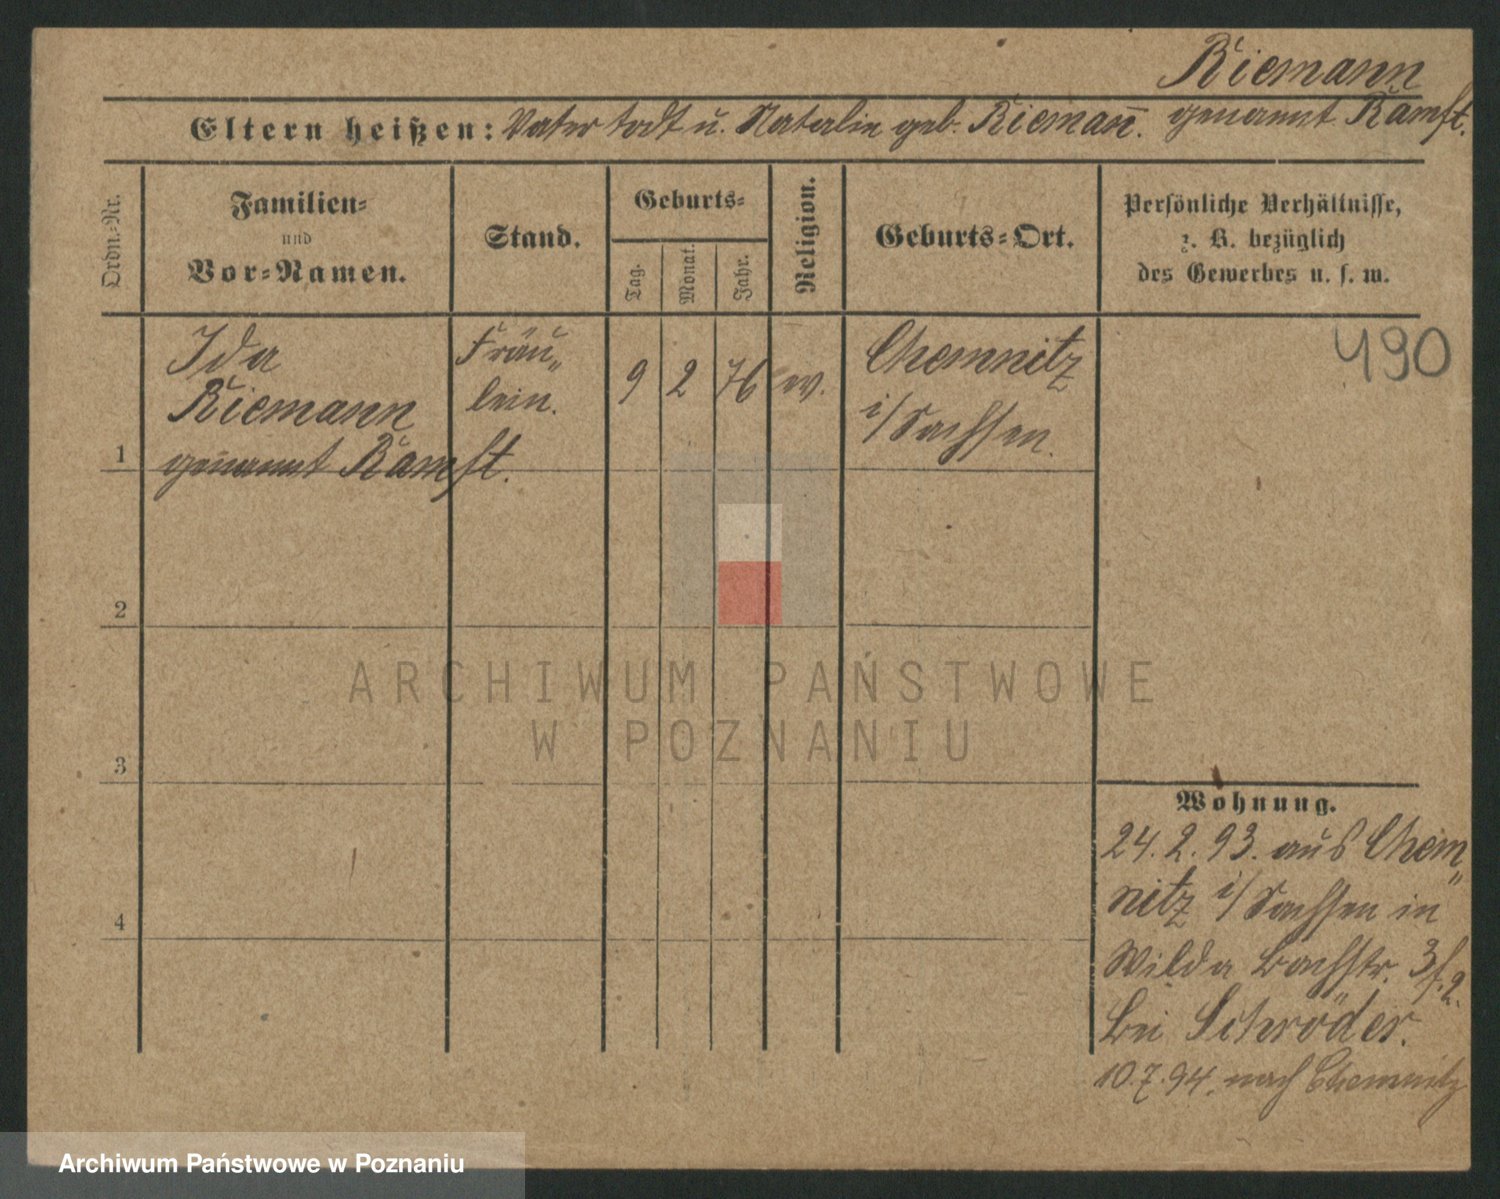 Riemann
Eltern heißen: Vater todt u. Natalie geb. Rieman̅. genannt Ramft.
Ordn.-Nr.
Familien-
und
Vor-Namen.
Stand.
Geburts-
Tag.
Monat.
Jahr.
Religion.
Geburts-Ort.
Persönliche Verhältnisse,
z. B. bezüglich
des Gewerbes u. s. w.
490
1
Ida
Riemann
genannt Ramft.
Fräu„
lein.
9
2
76
ev.
Chemnitz
i/Sachsen.
2
3
4
ARCHIWUM PAŃSTWOWE
W POZNANIU
Wohnung.
24.2.93. aus Chem„
nitz i/Sachsen in
Wilda Bachstr. 3 f. 2.
bei Schröder.
10.7.94. nach Chemnitz
Archiwum Państwowe w Poznaniu